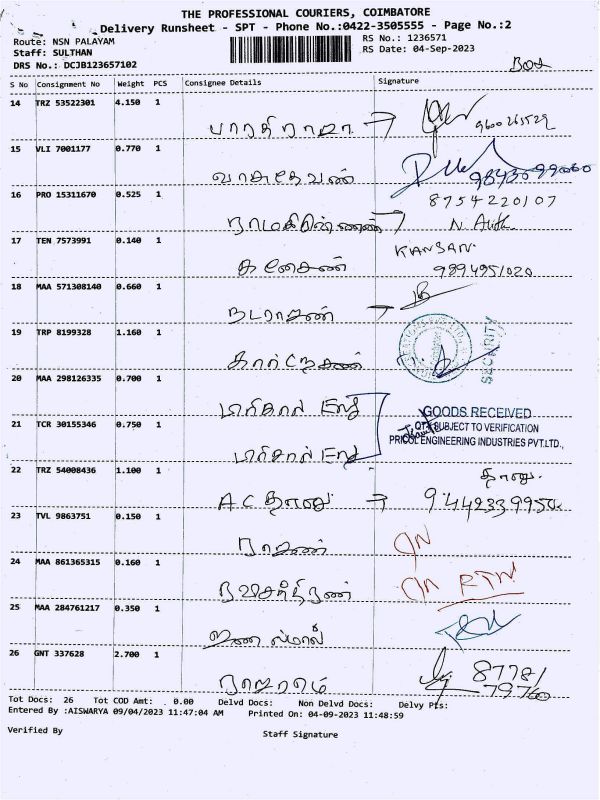 THE PROFESSIONAL COURIERS, COIMBATORE
Delivery Runsheet - SPT - Phone No.:0422-3505555 - Page No.:2
Route: NSN PALAYAM
RS No.: 1236571
Staff: SULTHAN
RS Date: 04-Sep-2023
DRS No.: DCJB123657102
S No Consignment No Weight PCS Consignee Details Signature
14 TRZ 53522301 4.150 1
பாரதிராஜா → 9600265529
15 VLI 7001177 0.770 1
வாசுதேவன்
16 PRO 15311670 0.525 1
8754220107
17 TEN 7573991 0.140 1
கணேசன் KANSAN
9894951020
18 MAA 571308140 0.660 1
நடராஜன் →
19 TRP 8199328 1.160 1
SECURITY
20 MAA 298126335 0.700 1
GOODS RECEIVED
21 TCR 30155346 0.750 1
SUBJECT TO VERIFICATION
PRICOL ENGINEERING INDUSTRIES PVT.LTD.,
22 TRZ 54008436 1.100 1
A C தானு →
23 TVL 9863751 0.150 1
ராஜன்
24 MAA 861365315 0.160 1
RTN
25 MAA 284761217 0.350 1
26 GNT 337628 2.700 1
ராஜாராம் 8778/
79760
Tot Docs: 26 Tot COD Amt: 0.00 Delvd Docs: Non Delvd Docs: Delvy Pts:
Entered By :AISWARYA 09/04/2023 11:47:04 AM Printed On: 04-09-2023 11:48:59
Verified By
Staff Signature